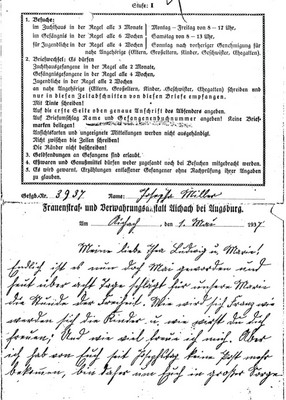 Stufe: I
1. Besuche:
im Zuchthaus in der Regel alle 3 Monate,
im Gefängnis in der Regel alle 6 Wochen
für Jugendliche in der Regel alle 4 Wochen
Montag – Freitag von 8 – 17 Uhr,
Samstag von 8 – 13 Uhr,
Sonntag nach vorheriger Genehmigung für
nahe Angehörige (Eltern, Großeltern, Kinder, Geschwister, Ehegatten).
2. Briefwechsel: Es dürfen
Zuchthausgefangene in der Regel alle 3 Monate,
Gefängnisgefangene in der Regel alle 4 Wochen,
Jugendliche in der Regel alle 2 Wochen
an nahe Angehörige (Eltern, Großeltern, Kinder, Geschwister, Ehegatten) schreiben und
nur in diesen Zeitabschnitten von diesen Briefe empfangen.
Mit Tinte schreiben!
Auf die erste Seite oben genaue Anschrift des Absenders angeben.
Auf Briefumschlag Name und Gefangenenbuchnummer angeben! Keine Brief-
marken beilegen!
Ansichtskarten und ungeeignete Mitteilungen werden nicht ausgehändigt.
Nicht zwischen die Zeilen schreiben!
Die Ränder nicht beschreiben!
3. Geldsendungen an Gefangene sind erlaubt.
4. Esswaren und Genußmittel dürfen weder zugesandt noch bei Besuchen mitgebracht werden.
5. Es wird gewarnt, Erzählungen entlassener Gefangener ohne Nachprüfung ihrer Angaben
zu glauben.
Gefgb.Nr. 3937 Name: Josepha Miller
Frauenstraf- und Verwahrungsanstalt Aichach bei Augsburg.
Am Aichach, den 1. Mai 1937
Meine liebe ihr Ludwig u. Marie!
Endlich ist es nun doch Mai geworden und
heut über acht Tage schlägt für unsere Marie
die Stunde der Freiheit. Wie wird sich Franz wie
werden sich die Kinder u. wie wirst du dich
freuen; Und wie viel freue ich mich. Aber
ich hab von Euch seit Josephitag keine Post mehr
bekommen, bin daher um Euch in großer Sorge